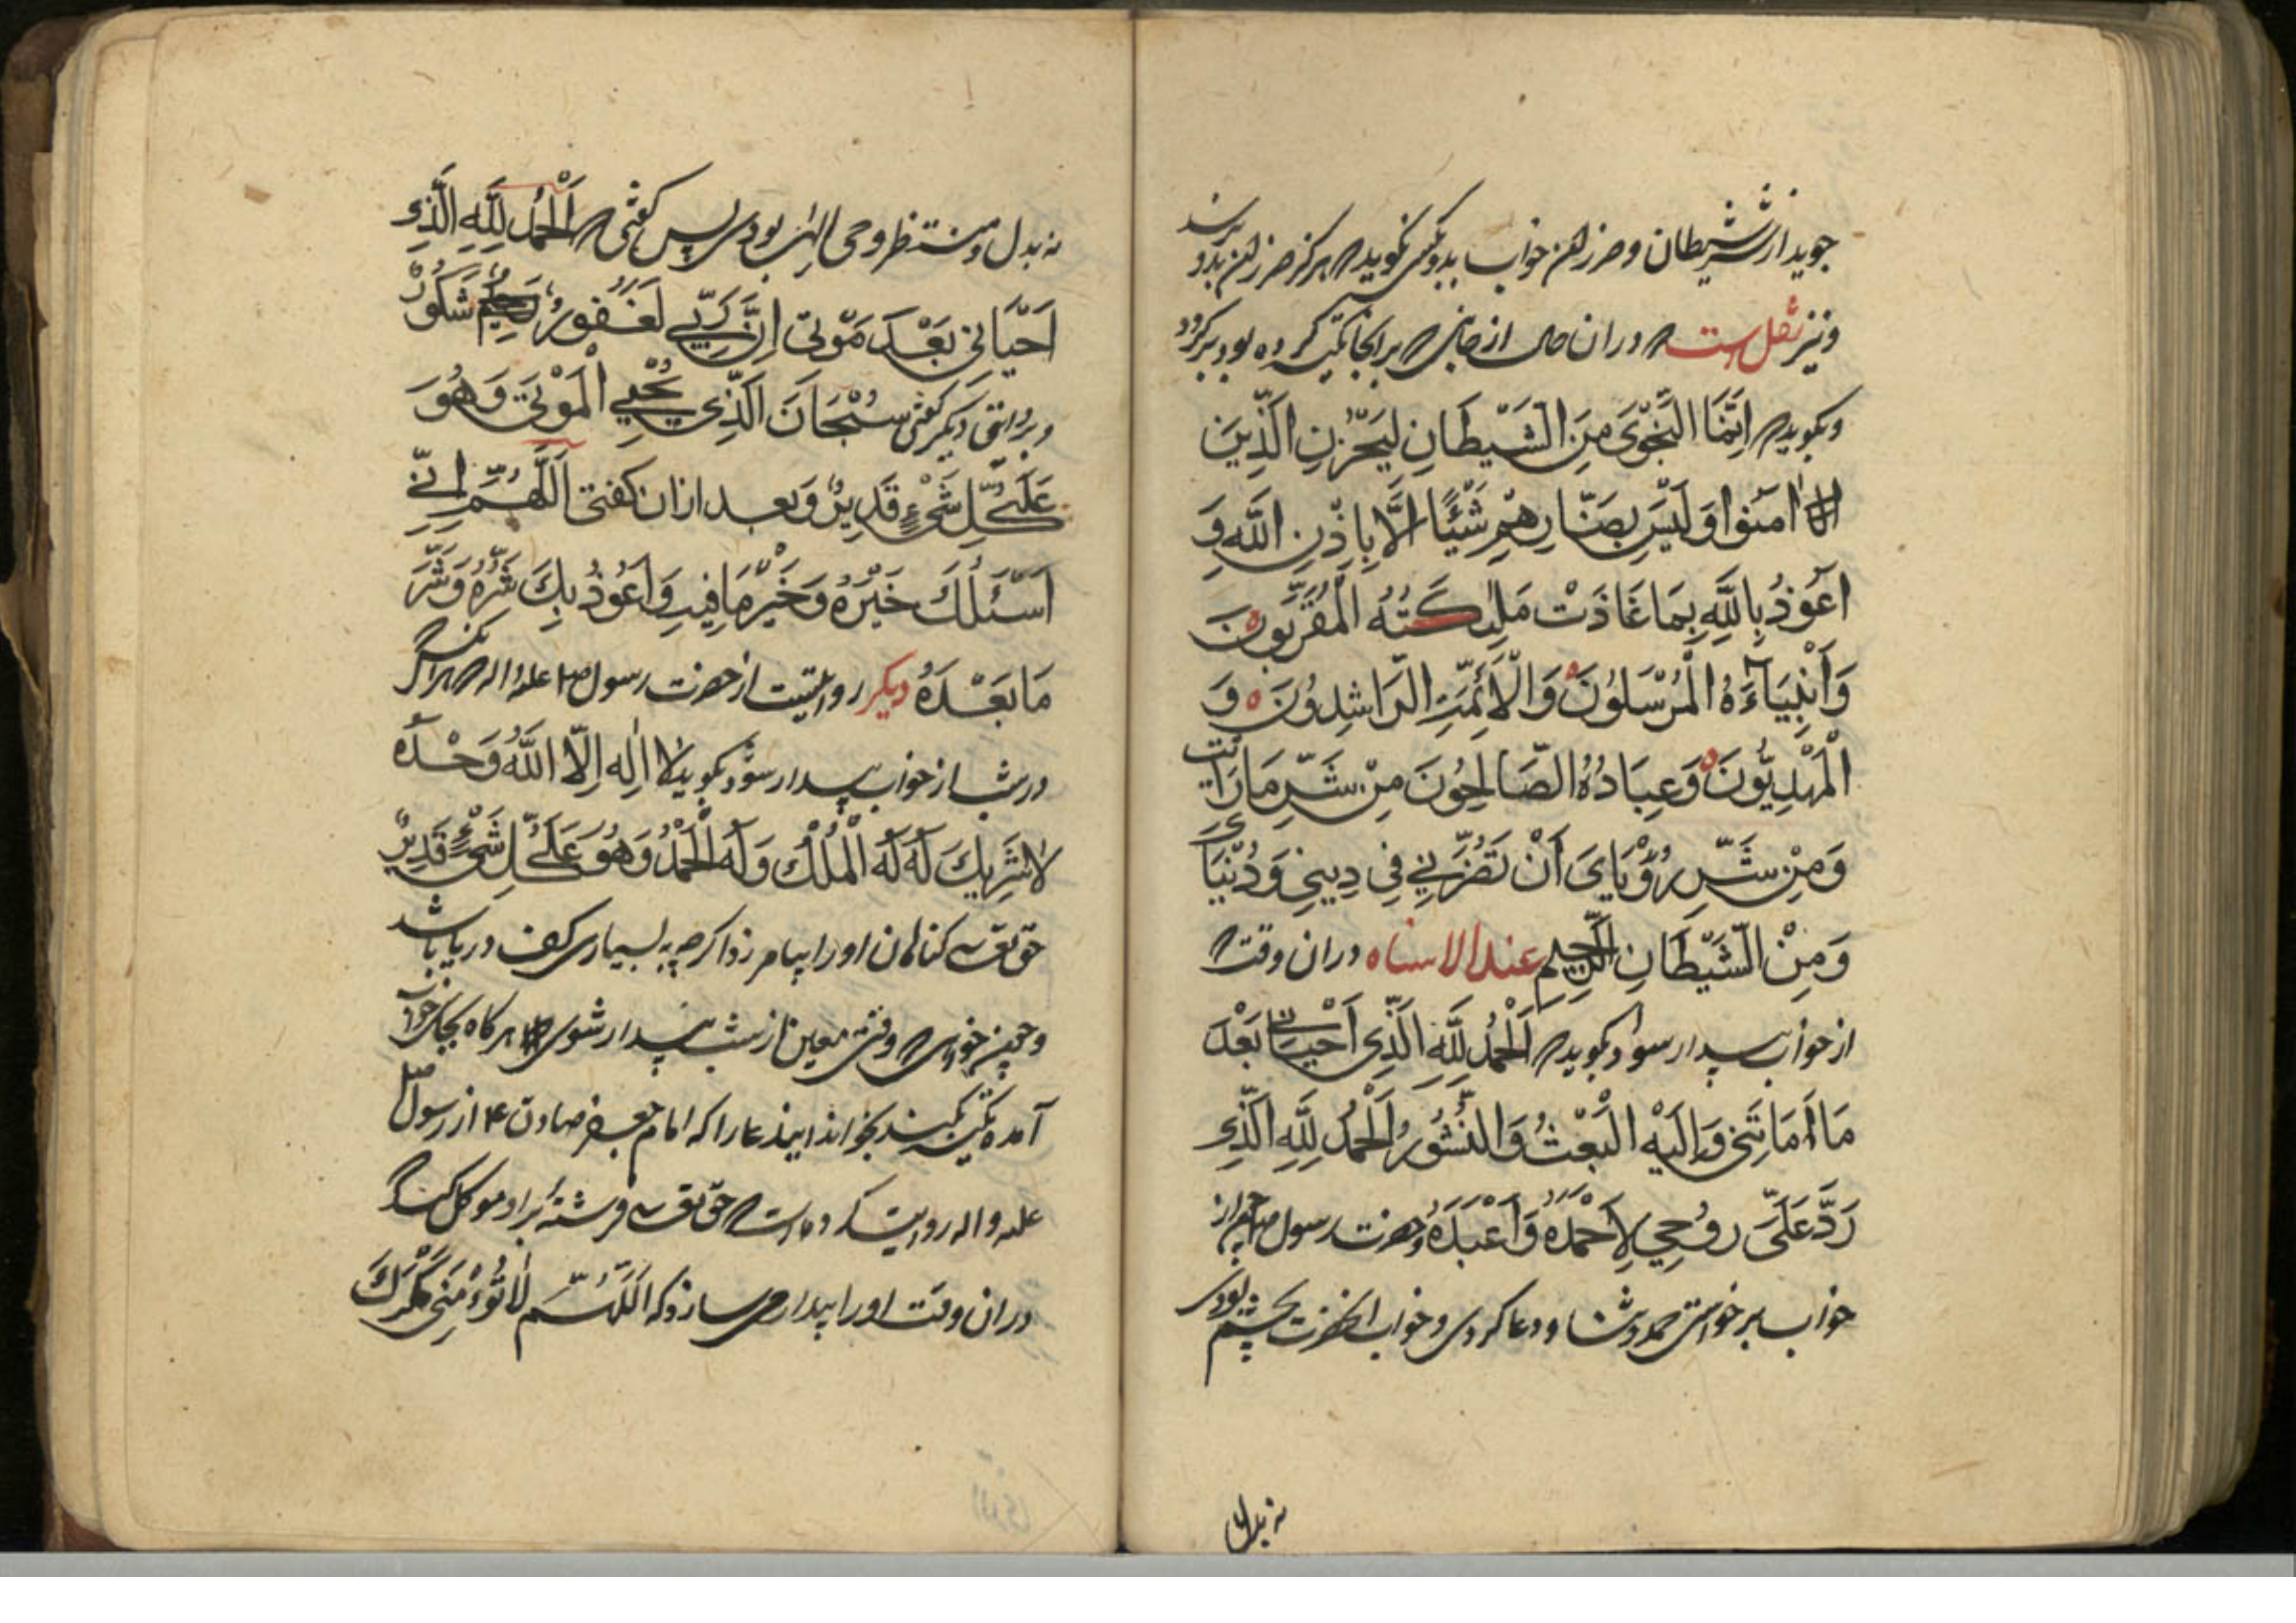 جوید از شر شیطان و ضرر این خواب بد و بکس نکوید که هرکز ضرر این بدو نرسد
و نیز نقل است که در ان حال از جانبی که بر انجا تکیه کرده بود برکردد
و بکوید که اِنَّمَا النَّجْوَى مِنَ الشَّيْطَانِ لِيَحْزُنَ الَّذِينَ
اٰمَنُوا وَ لَيْسَ بِضَارِّهِمْ شَيْئًا اِلَّا بِاِذْنِ اللَّهِ وَ
اَعُوذُ بِاللَّهِ بِمَا عَاذَتْ مَلٰئِكَتُهُ الْمُقَرَّبُونَ
وَ اَنْبِيَاءَهُ الْمُرْسَلُونَ وَ الْاَئِمَّةِ الرَّاشِدُونَ وَ
الْمَهْدِيُّونَ وَ عِبَادُهُ الصَّالِحُونَ مِنْ شَرِّ مَا رَاَيْتُ
وَ مِنْ شَرِّ رُؤْيَايَ اَنْ تَضُرَّنِي فِي دِينِي وَ دُنْيَايَ
وَ مِنَ الشَّيْطَانِ الرَّجِيمِ عند الانتباه در ان وقت که
از خواب بیدار شود بکوید که اَلْحَمْدُ لِلَّهِ الَّذِي اَحْيَانِي بَعْدَ
مَا اَمَاتَنِي وَ اِلَيْهِ الْبَعْثُ وَ النُّشُورُ اَلْحَمْدُ لِلَّهِ الَّذِي
رَدَّ عَلَيَّ رُوحِي لِاَحْمَدَهُ وَ اَعْبُدَهُ و حضرت رسول ص چون از
خواب برخواستی حمد و ثنا و دعا کردی و خواب انحضرت بچشم بودی
نه بدل
نه بدل و منتظر وحی الهی بودی پس کفتی که اَلْحَمْدُ لِلَّهِ الَّذِي
اَحْيَانِي بَعْدَ مَوْتِي اِنَّ رَبِّي لَغَفُورٌ شَكُورٌ
و بروایتی دیکر کفتی سُبْحَانَ الَّذِي يُحْيِي الْمَوْتَى وَ هُوَ
عَلَى كُلِّ شَيْءٍ قَدِيرٌ و بعد از ان کفتی اَللَّهُمَّ اِنِّي
اَسْئَلُكَ خَيْرَهُ وَ خَيْرَ مَا فِيهِ وَ اَعُوذُ بِكَ شَرِّهُ وَ شَرَّ
مَا بَعْدَهُ دیکر روایتست از حضرت رسول ص علیه و اله که هر انکس که
در شب از خواب بیدار شود بکوید لا اِلٰهَ اِلَّا اللَّهُ وَحْدَهُ
لا شَرِيكَ لَهُ لَهُ الْمُلْكُ وَ لَهُ الْحَمْدُ وَ هُوَ عَلَى كُلِّ شَيْءٍ قَدِيرٌ
حق تعالی کناهان او را بیامرزد اکرچه به بسیاری کف دریا باشد
و چون خواهی که وقتی معین از شب بیدار شوی هرکاه بجای خواب
آمده تکیه کنند بخواند این دعا را که امام جعفر صادق ع از رسول ص
علیه و اله روایت کرده است که حق تعالی فرشته بر او موکل کند که
در ان وقت او را بیدار می سازد که اَللَّهُمَّ لَا تُؤْمِنِّي مَكْرَكَ